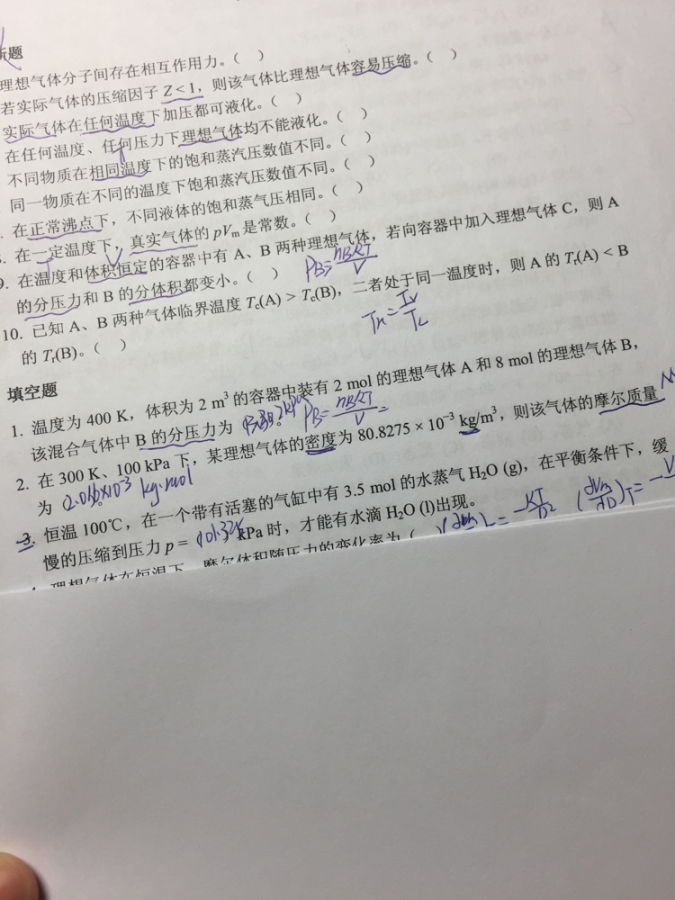 断题
理想气体分子间存在相互作用力。( )
若实际气体的压缩因子 Z < 1，则该气体比理想气体容易压缩。( )
实际气体在任何温度下加压都可液化。( )
在任何温度、任何压力下理想气体均不能液化。( )
不同物质在相同温度下的饱和蒸汽压数值不同。( )
同一物质在不同的温度下饱和蒸汽压数值不同。( )
在正常沸点下，不同液体的饱和蒸气压相同。( )
在一定温度下，真实气体的 pVm 是常数。( )
9. 在温度和体积恒定的容器中有 A、B 两种理想气体，若向容器中加入理想气体 C，则 A
的分压力和 B 的分体积都变小。( ) PB= nBRT/V
10. 已知 A、B 两种气体临界温度 Tc(A) > Tc(B)，二者处于同一温度时，则 A 的 Tr(A) < B
的 Tr(B)。( )
填空题
1. 温度为 400 K，体积为 2 m³ 的容器中装有 2 mol 的理想气体 A 和 8 mol 的理想气体 B，
该混合气体中 B 的分压力为 ( )。 PB= nBRT/V =
2. 在 300 K、100 kPa 下，某理想气体的密度为 80.8275 × 10⁻³ kg/m³，则该气体的摩尔质量 M
为 (2.016×10⁻³ kg·mol
3. 恒温 100℃，在一个带有活塞的气缸中有 3.5 mol 的水蒸气 H₂O (g)，在平衡条件下，缓
慢的压缩到压力 p = (101.325 kPa 时，才能有水滴 H₂O (l)出现。
理想气体在恒温下，摩尔体积随压力的变化率为 (